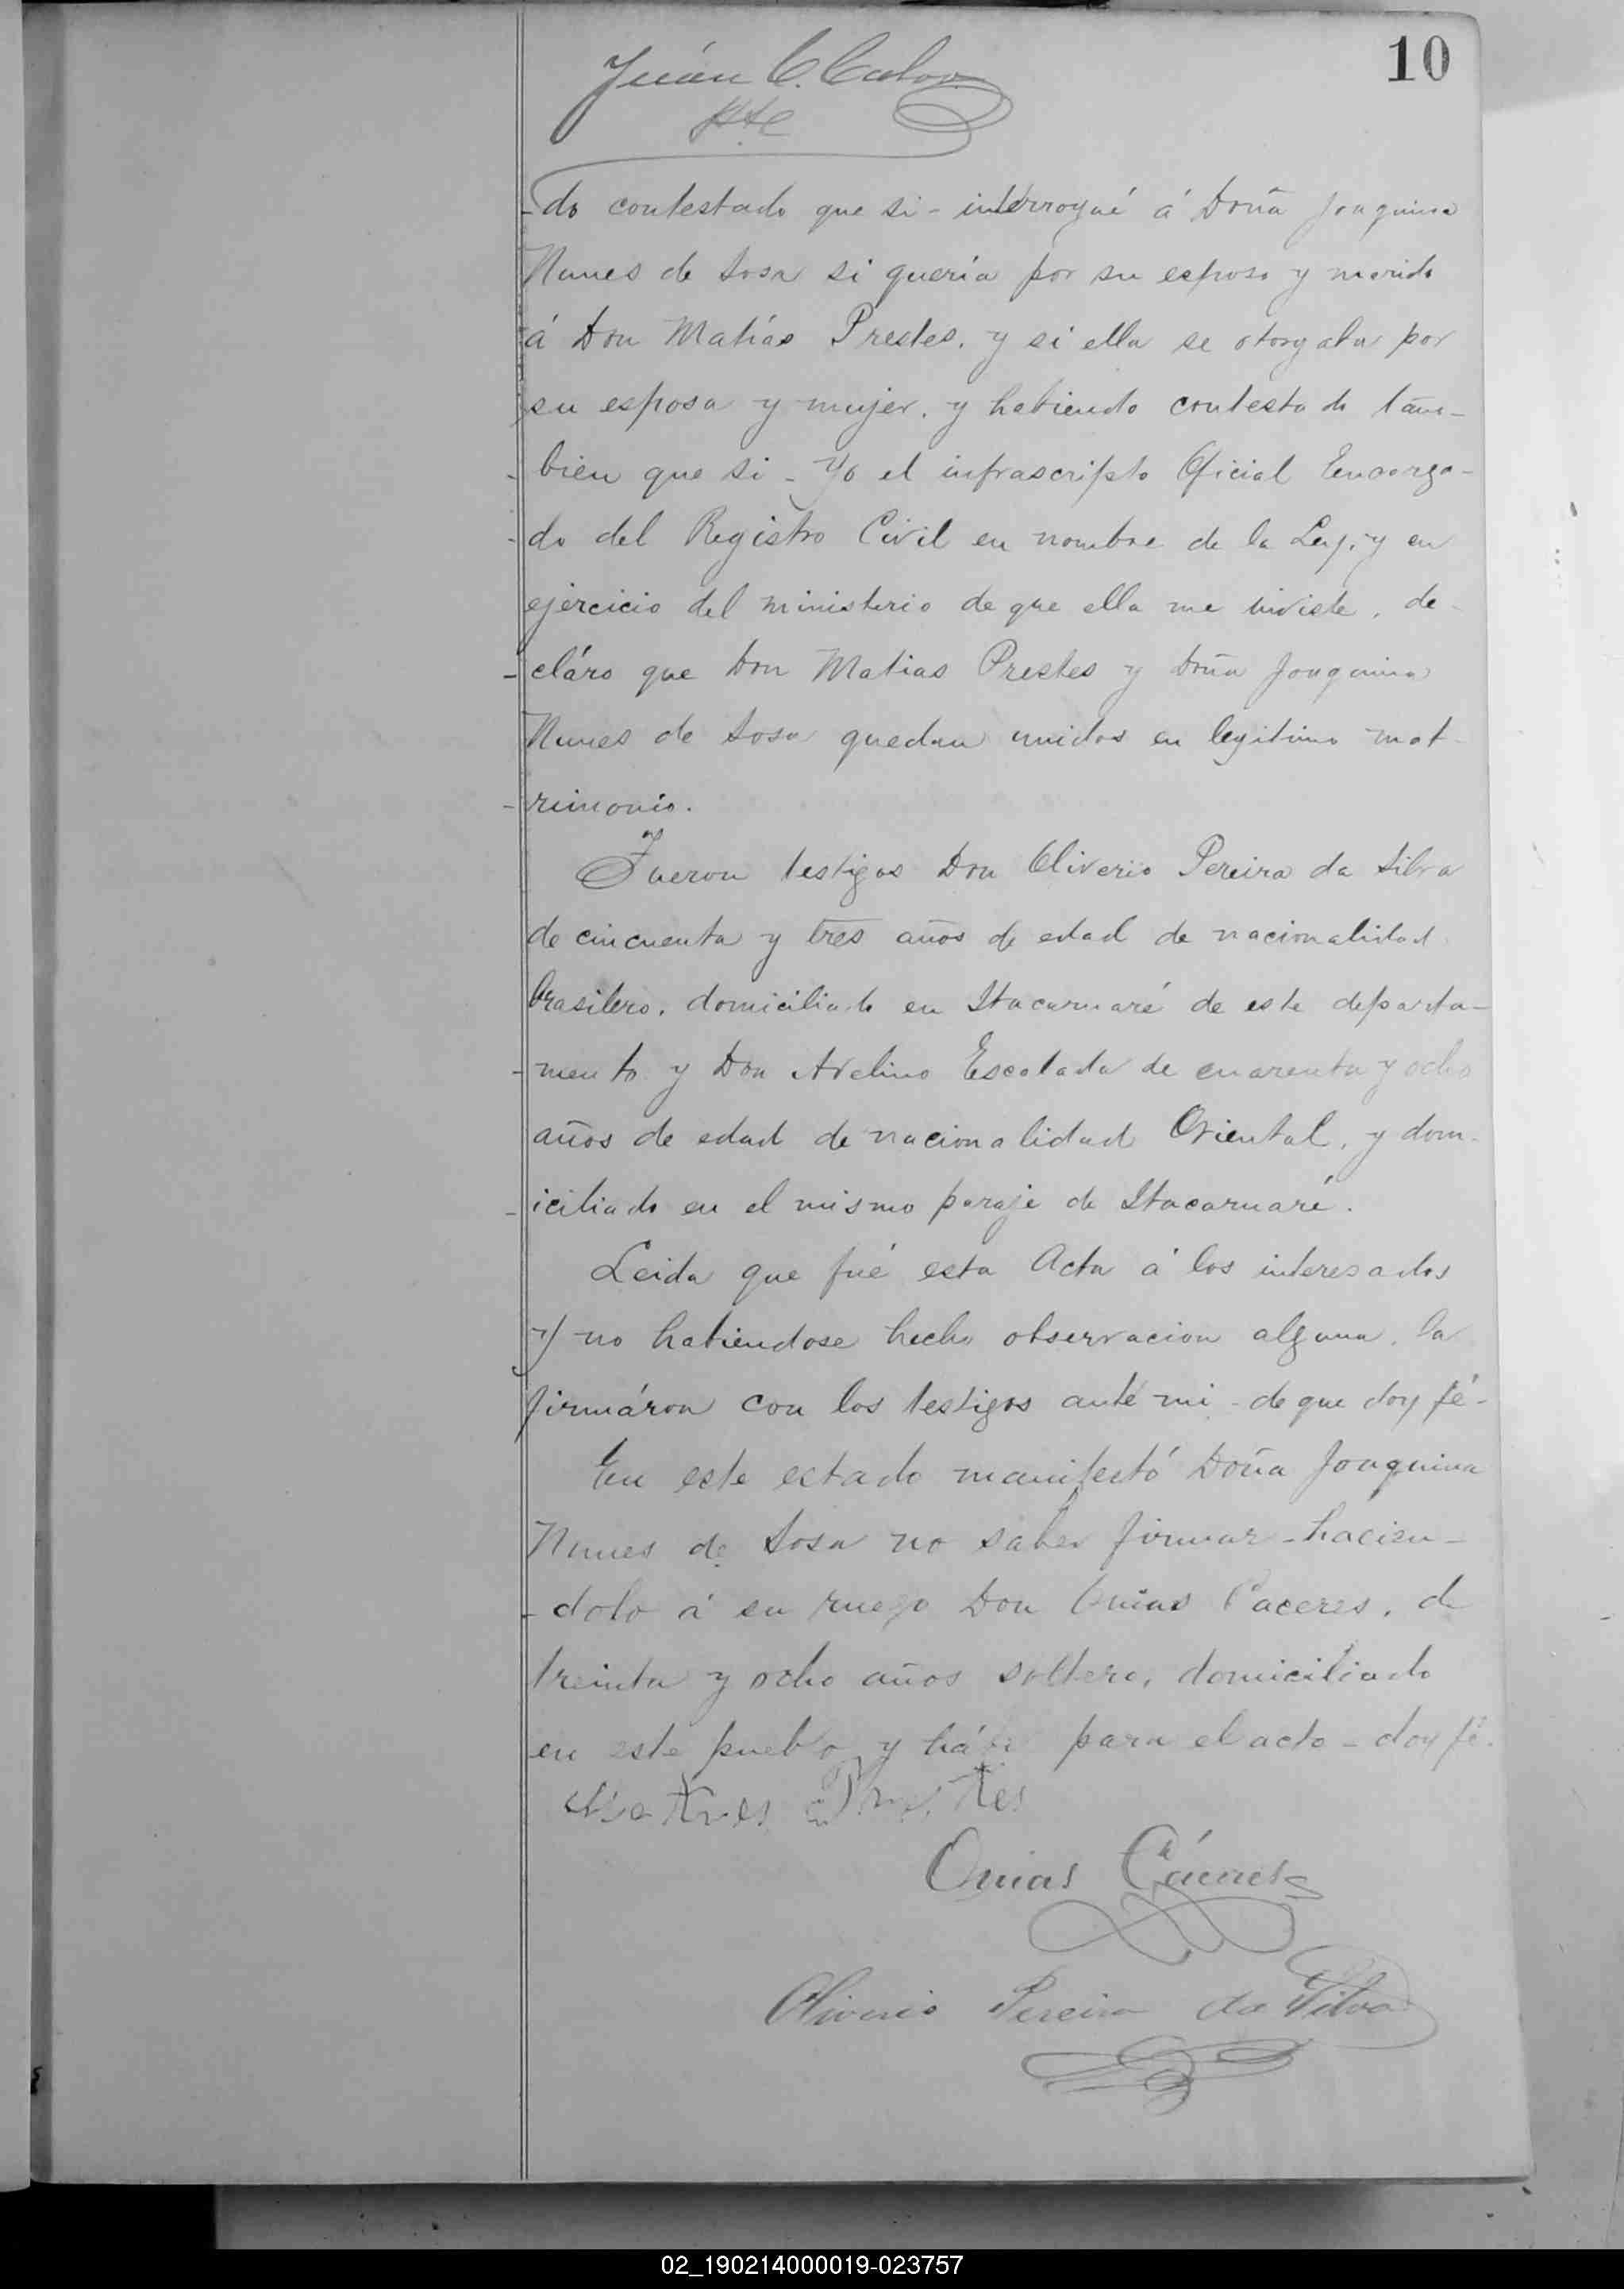 10
Juán C. Calvo
Pte
do contestado que si - interrogué á Doña Joaquina
Nunes de Sosa si quería por su esposo y marido
á Don Matías Prestes. y si ella se otorgaba por
su esposa y mujer. y habiendo contestado tam-
bien que si - Yo el infrascripto Oficial Encarga-
do del Registro Civil en nombre de la Ley, y en
ejercicio del ministerio de que ella me inviste, de-
cláro que Don Matias Prestes y Doña Joaquina
Nunes de Sosa quedan unidos en legitimo mat-
rimonio.
Fueron testigos Don Oliverio Pereira da Silva
de cincuenta y tres años de edad de nacionalidad
brasilero, domiciliado en Itacaruaré de este departa-
mento y Don Avelino Escalada de cuarenta y ocho
años de edad de nacionalidad Oriental, y dom-
iciliado en el mismo paraje de Itacaruaré.
Leida que fué esta Acta á los interesados
y no habiendose hecho observacion alguna, la
firmáron con los testigos ante mi - de que doy fé -
En este estado manifestó Doña Joaquina
Nunes de Sosa no saber firmar - hacien-
dolo á su ruego Don Onias Caceres, de
treinta y ocho años soltero, domiciliado
en este pueblo y hábil para el acto - doy fé.
Onias Cáceres
Oliverio Pereira da Silva
02_190214000019-023757